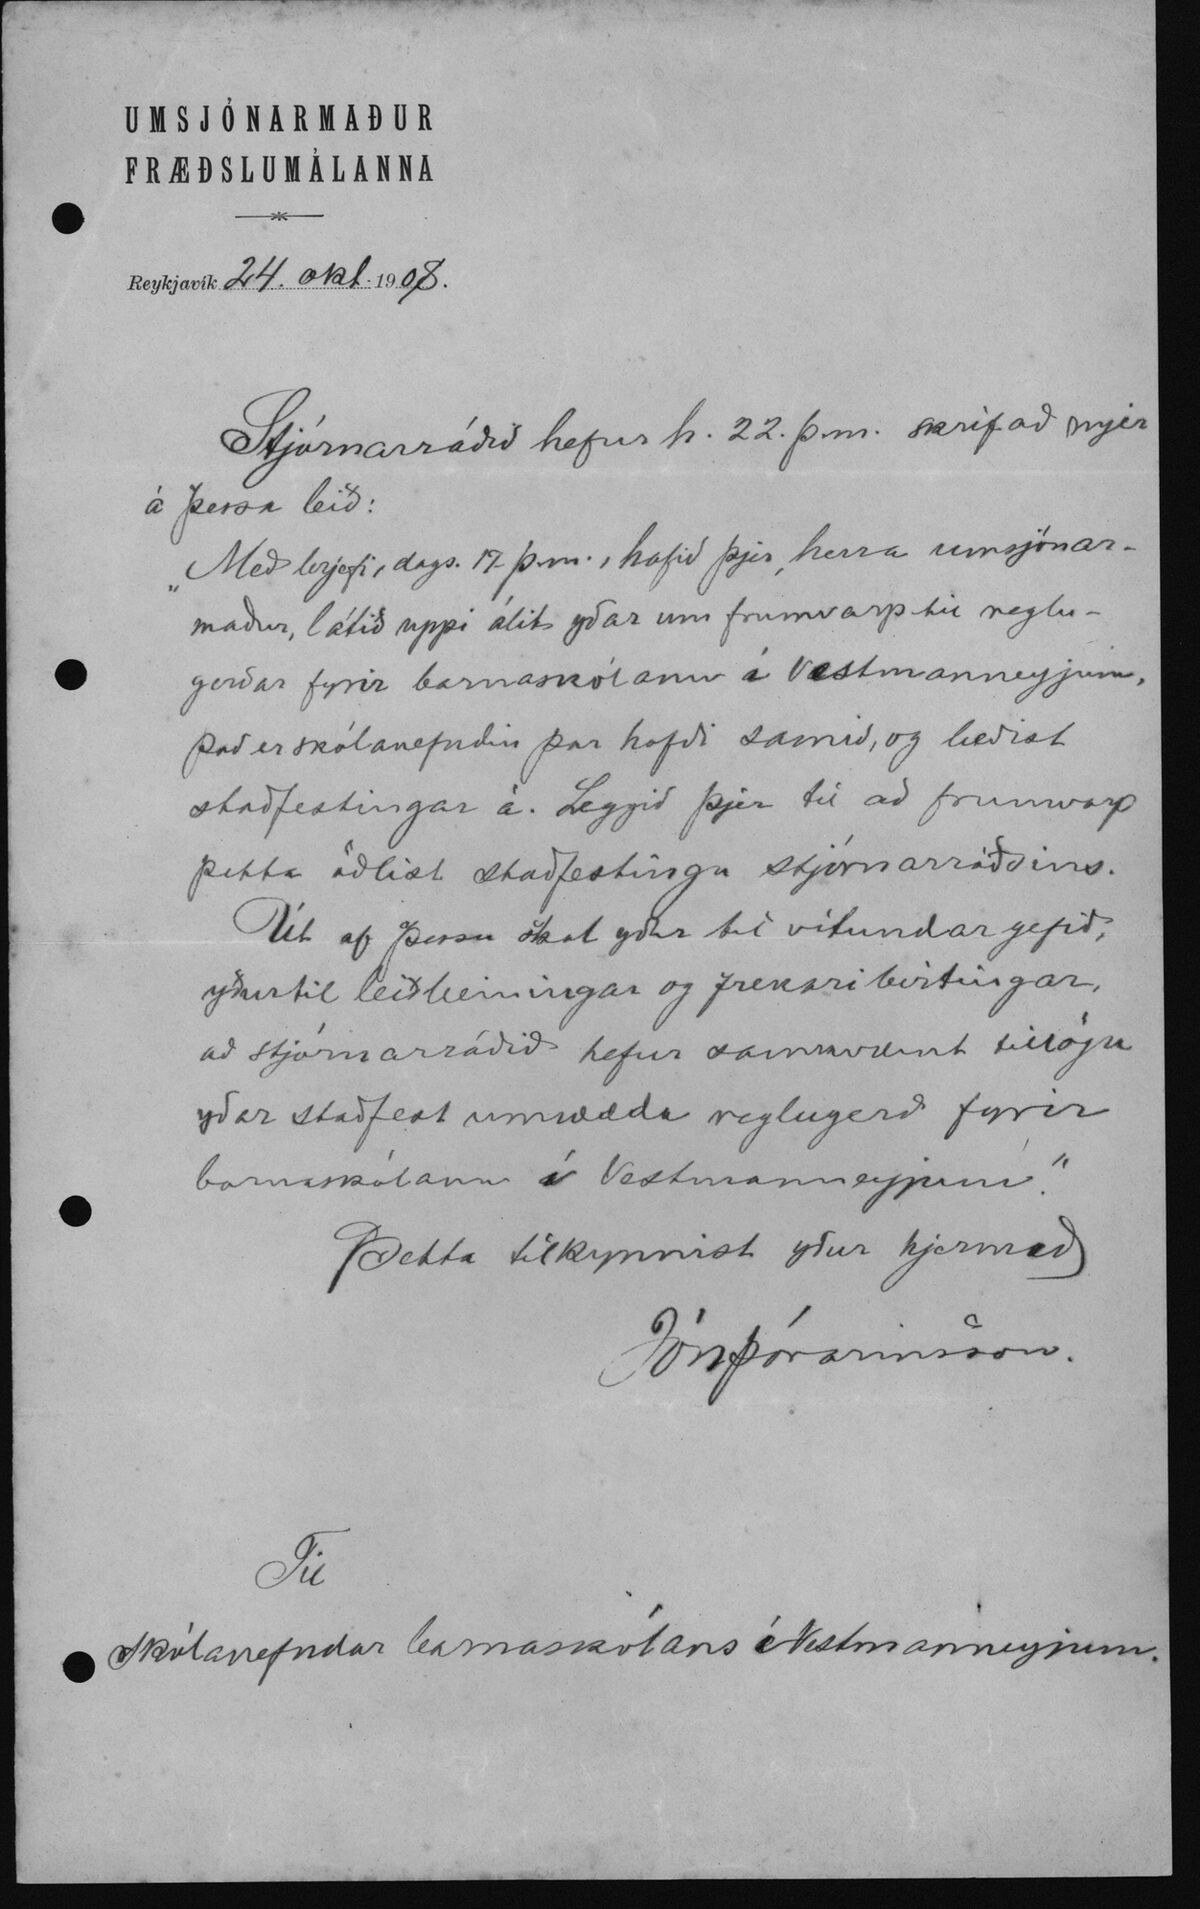 UMSJÓNARMAÐUR
FRÆÐSLUMÁLANNA
Reykjavík 24. okt. 1908.
Stjórnarráðið hefur h. 22. þ.m. skrifað mjer
á þessa leið:
„Með brjefi, dags. 17 þ.m., hafið þjer, herra umsjónar-
maður, látið uppi álit yðar um frumvarp til reglu-
gerðar fyrir barnaskólann í Vestmanneyjum,
það er skólanefndin þar hafði samið, og beðist
staðfestingar á. Leggið þjer til að frumvarp
þetta öðlist staðfestingu stjórnarráðsins.
Út af þessu skal yður til vitundar gefið,
yður til leiðbeiningar og frekari birtingar,
að stjórnarráðið hefur samkvæmt tillögu
yðar staðfest umrædda reglugerð fyrir
barnaskólann í Vestmanneyjum“.
Þetta tilkynnist yður hjermeð
Jón Þórarinsson.
Til
Skólanefndar barnaskólans í Vestmanneyjum.